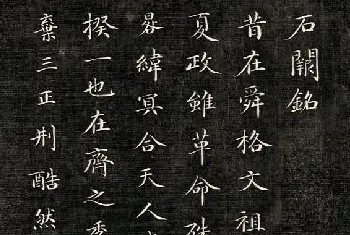 石闕銘
昔在舜格文祖
夏政雖革命殊
晷緯冥合天人
揆一也在齊之季
棄三正刑酷然